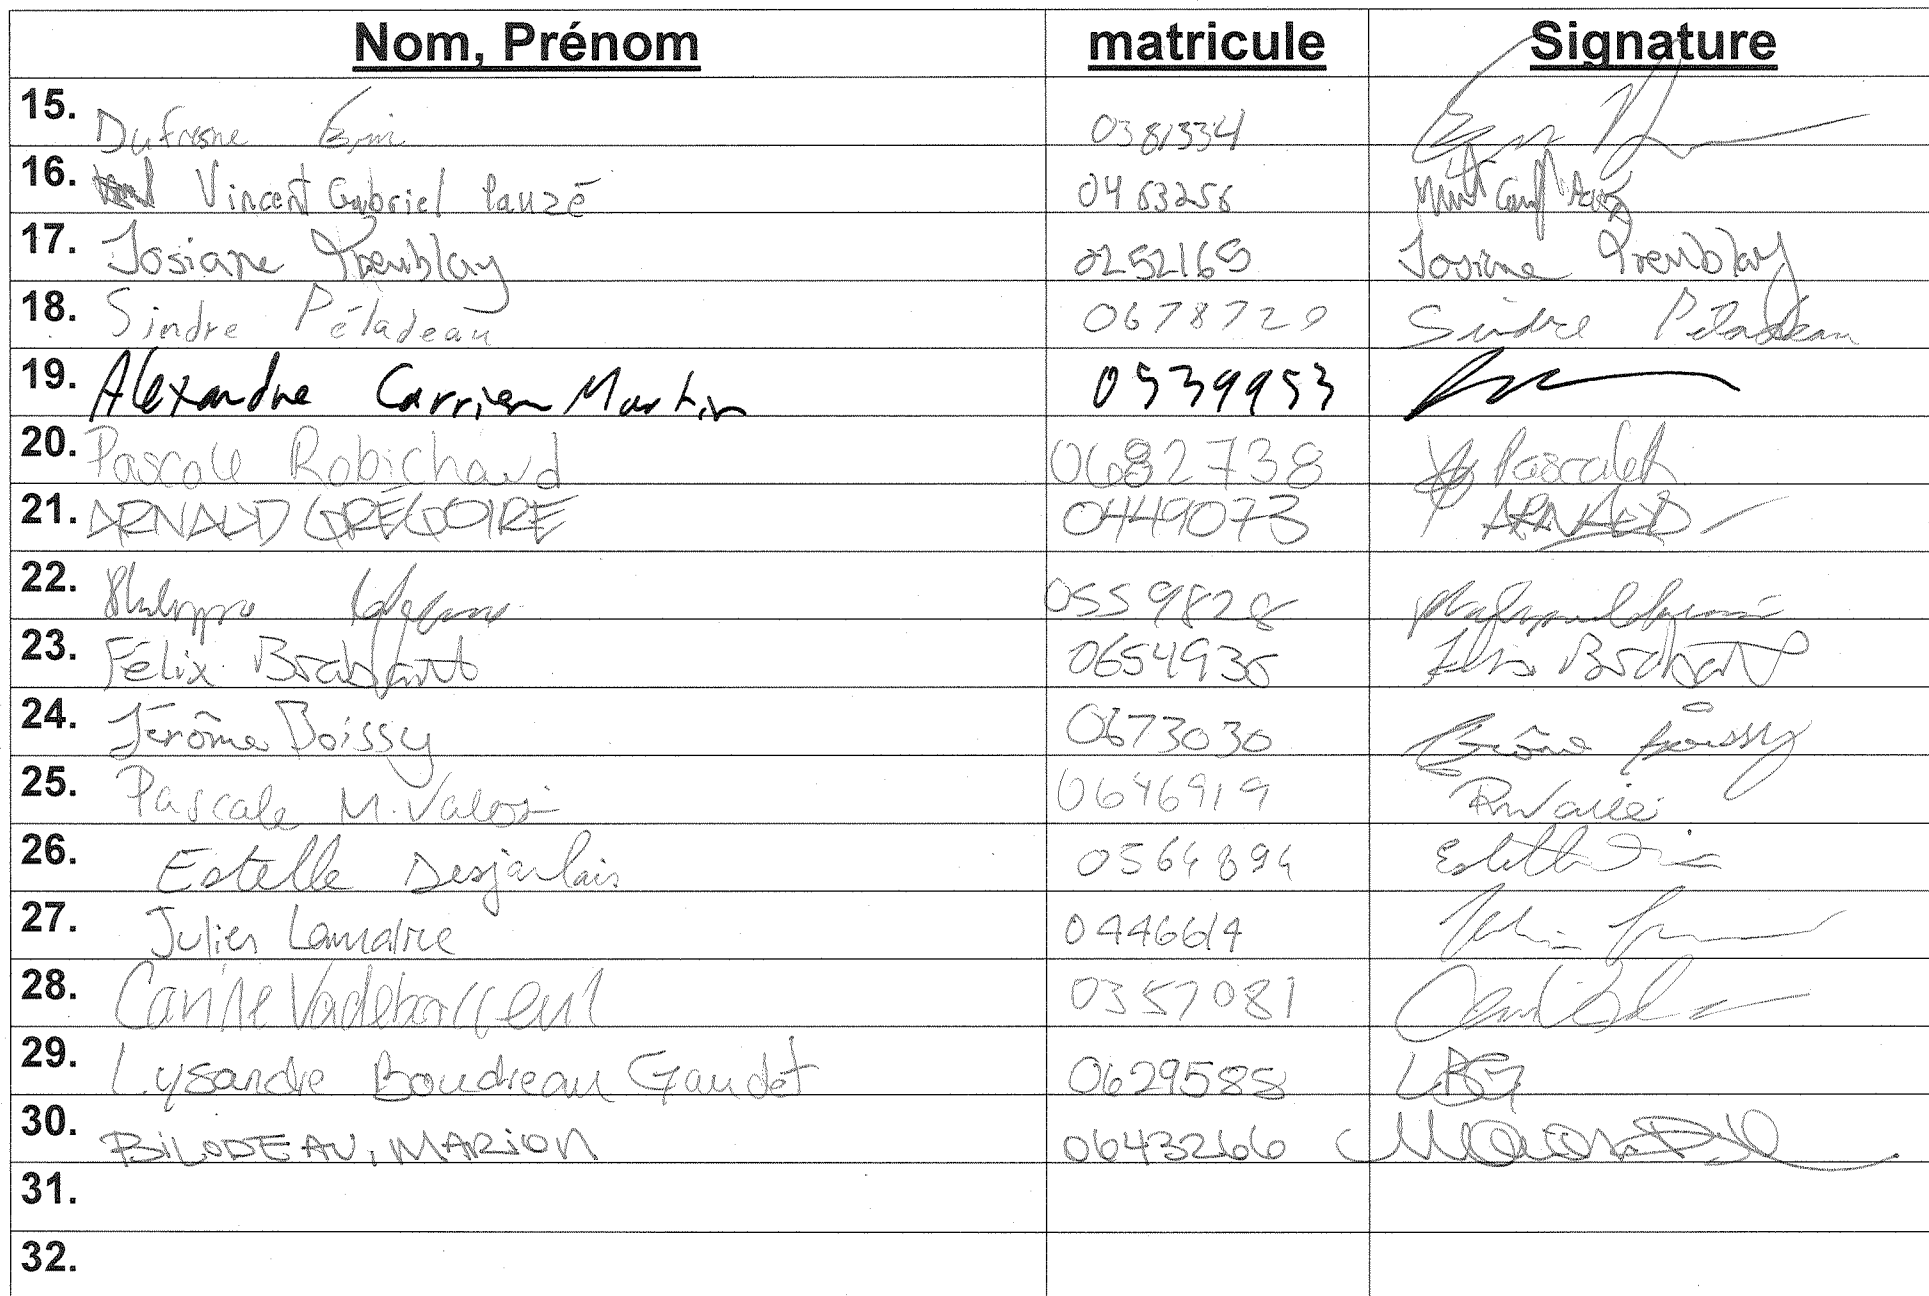 Nom, Prénom matricule Signature
15. Dufresne 0381334
16. Vincent Gabriel Pauzé 0463256
17. Josiane Tremblay 0252165 Josiane Tremblay
18. Sindre Péladeau 0678720 Sindre Péladeau
19. Alexandre Carrier Martin 0539953
20. Pascale Robichaud 0682738
21. ARNAUD GRÉGOIRE 0449073 ARNAUD
22. Philippe 0559828
23. Félix Brabant 0654936 Félix Brabant
24. Jérôme Boissy 0673030 Jérôme Boissy
25. Pascale M. Valois 0646919
26. Estelle Desjarlais 0564894 Estelle
27. Julien Lamarre 0446614
28. Carine Vadeboncoeur 0357081
29. Lysandre Boudreau Gaudet 0629588 LBG
30. BILODEAU, MARION 06432166
31.
32.